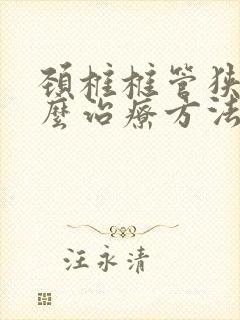 颈椎椎管狭
麼治療方法
汪永清